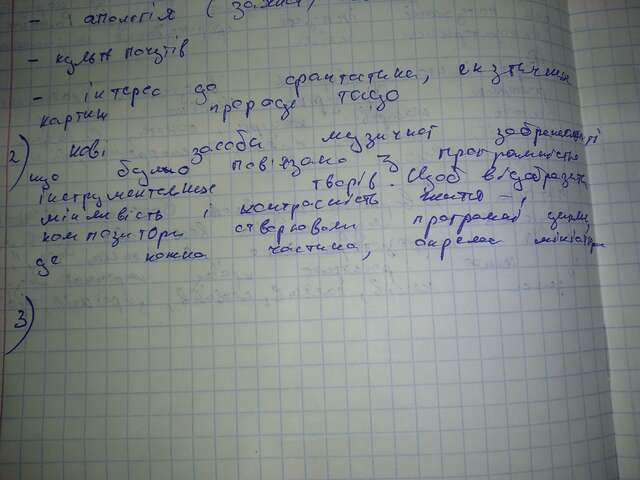 - і апологія (захист)
- культ почуттів
- інтерес до фантастики, екзотичних
картин природи тощо
2) нові засоби музичної зображальності
що було пов'язано з програмністю
інструментальних творів. Щоб відобразити
мінливість і контрасність життя -,
композитори створювали програмні цикли,
де кожна частина, окрема мініатюра
3)